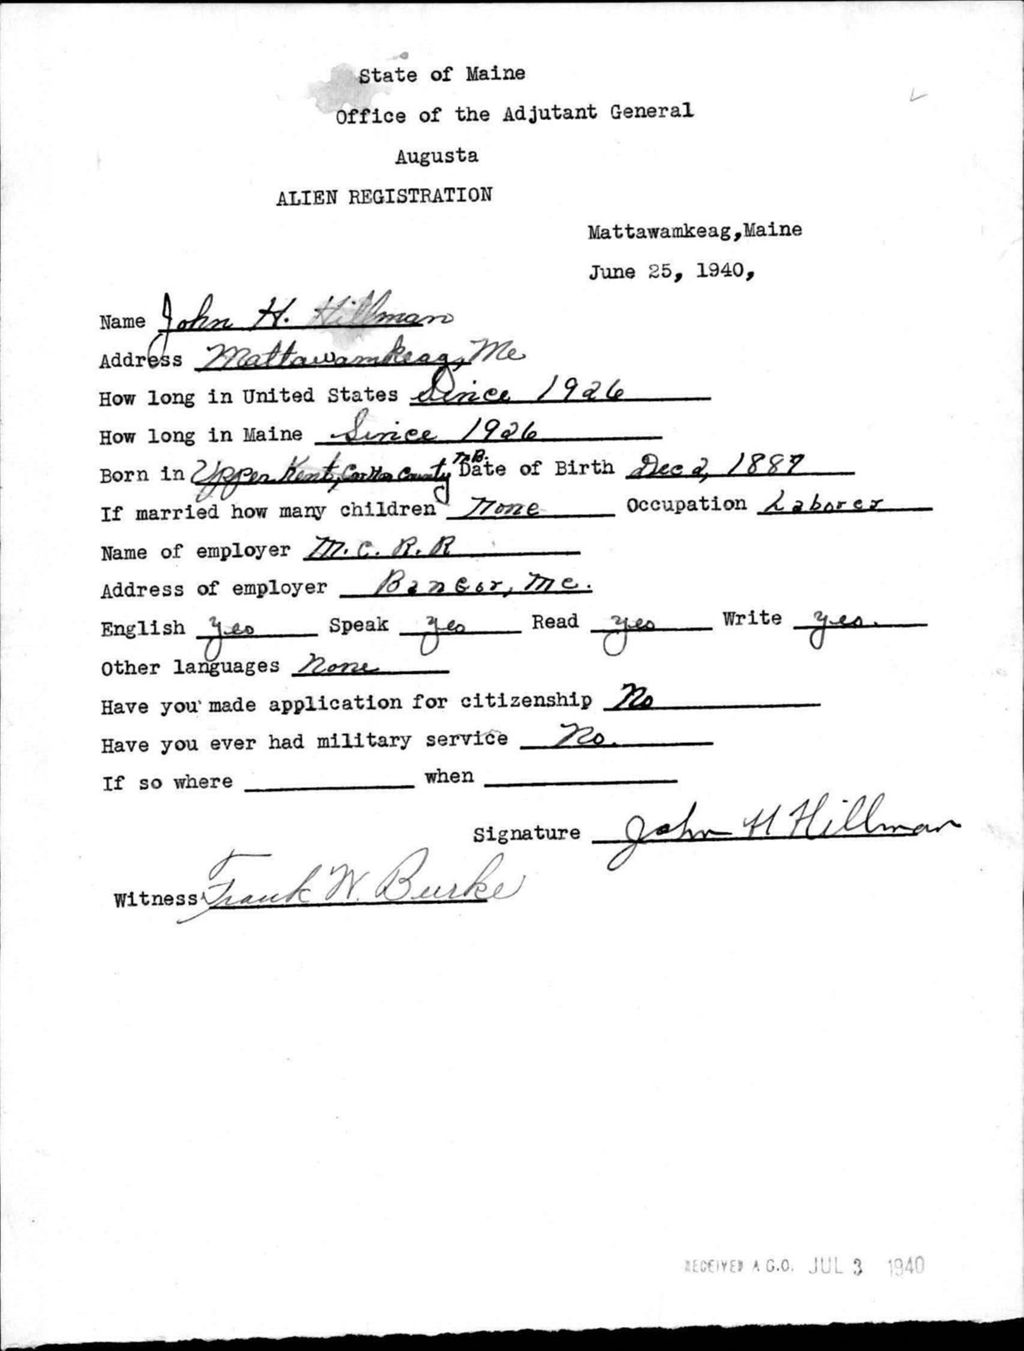 State of Maine
Office of the Adjutant General
Augusta
ALIEN REGISTRATION
Mattawamkeag,Maine
June 25, 1940,
Name John H. Hillman
Address Mattawamkeag, Me
How long in United States Since 1926
How long in Maine Since 1926
Born in Upper Kent, County N.B. Date of Birth Dec 2, 1889
If married how many children None Occupation Laborer
Name of employer M.C. R.R
Address of employer Bangor, Me.
English yes Speak yes Read yes Write yes.
Other languages None
Have you made application for citizenship No
Have you ever had military service No.
If so where when
Signature John H Hillman
Witness Frank W. Burke
RECEIVED A.G.O. JUL 3 1940